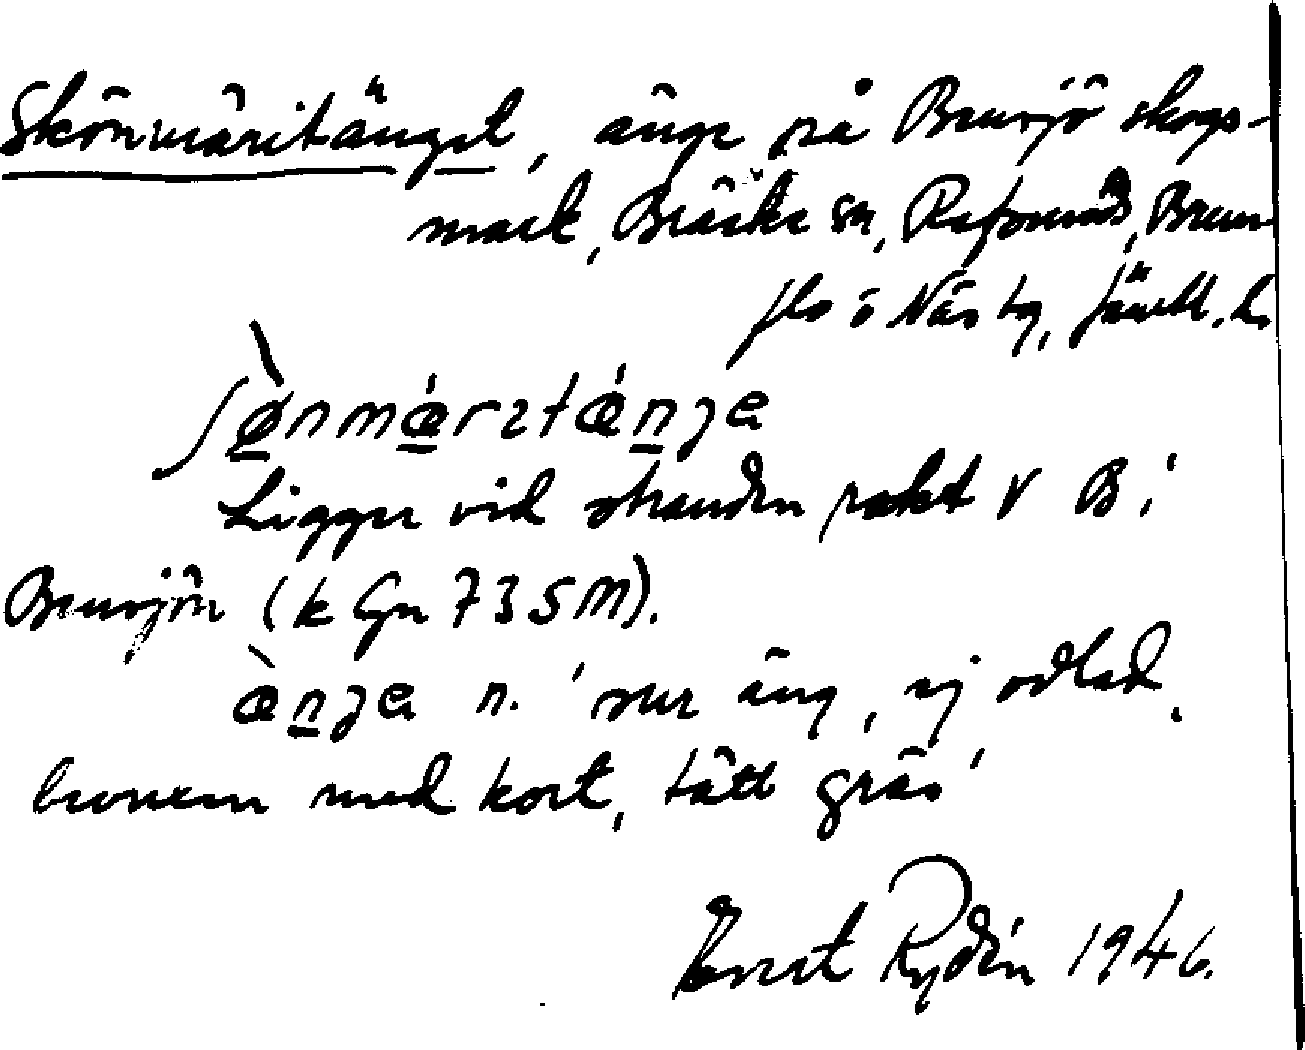 Skönmäritänget, änge på Brursjö skogs-
mark, Bräcke sn, Refsunds, Brun-
flo o Näs tg, Jämtl. l.
ʃø̀nmǽrıtǽnʒe
Ligger vid stranden rakt V B i
Brursjön (k Gn 735M).
æ̀nʒe n. 'sur äng, ej odlad,
bevuxen med kort, tätt gräs'
Ernst Rydén 1946.